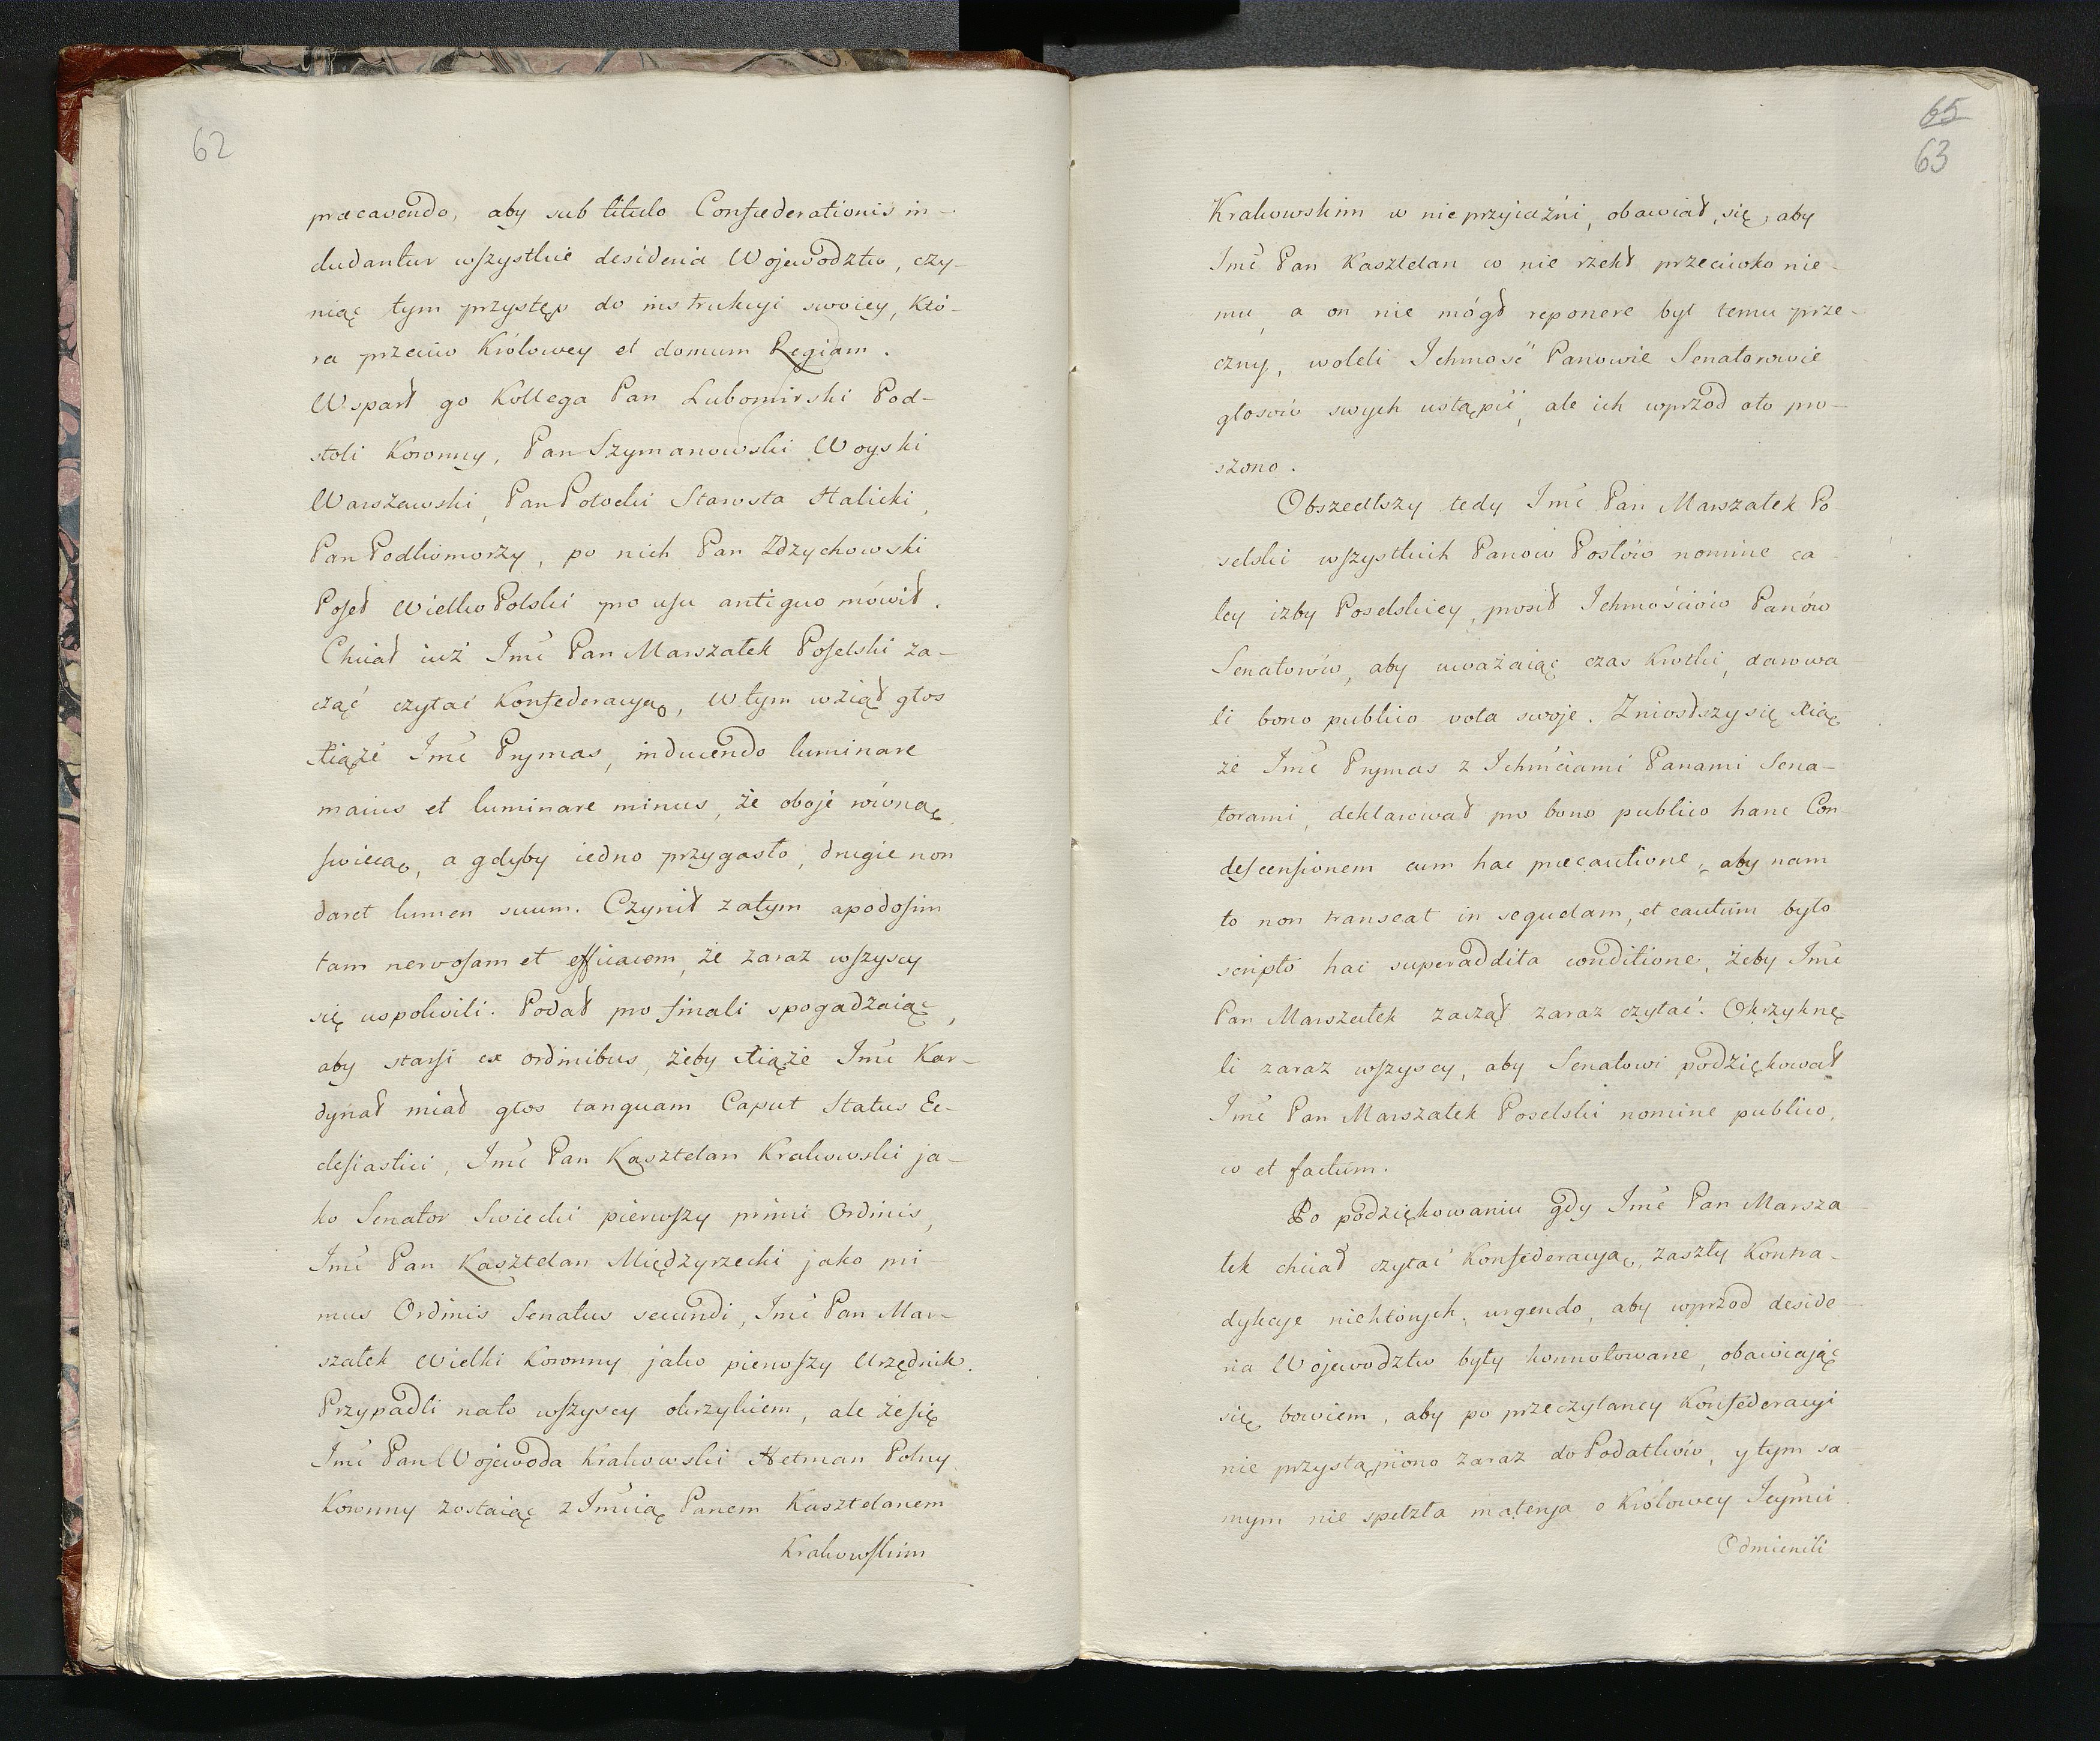 62
præcavendo, aby sub titulo Confæderationis in-
cludantur wszystkie desideria Wojewodztw, czy-
niąc tym przystęp do instrukcyi swoiey, któ-
ra przeciw Królowey et domum Regiam.
Wsparł go Kollega Pan Lubomirski Pod-
stoli Koronny, Pan Szymanowski Woyski
Warszawski, Pan Potocki Starosta Halicki,
Pan Podkomorzy, po nich Pan Zdzychowski
Poseł Wielko Polski pro usu antiquo mówił.
Chciał iuż Jmć Pan Marszałek Poselski za-
cząć czytać Konfederacyą, w tym wziął głos
Xiąże Jmć Prymas, inducendo luminare
maius et luminare minus, że oboje równo
swiecą, a gdyby iedno przygasło, drugie non
daret lumen suum. Czynił zatym apodosim
tam nervosam et efficacem, że zaraz wszyscy
się uspokoili. Podał pro finali spogadzaiąc,
aby starsi ex ordinibus, żeby Xiąże Jmć Kar-
dynał miał głos tanquam Caput Status Ec-
clesiastici, Jmć Pan Kasztelan Krakowski ja-
ko Senator Swiecki pierwszy primi Ordinis,
Jmć Pan Kasztelan Międzyrzecki jako pri-
mus Ordinis Senatus secundi, Jmć Pan Mar-
szałek Wielki Koronny jako pierwszy Urzędnik.
Przypadli nato wszyscy okrzykiem, ale że się
Jmć Pan Wojewoda Krakowski Hetman Polny
Koronny zostaiąc z Jmcią Panem Kasztelanem
Krakowskim
65
63
Krakowskim w nieprzyiaźni, obawiał się, aby
Jmć Pan Kasztelan co nie rzekł przeciwko nie-
mu, a on nie mógł reponere był temu prze-
czny, woleli Ichmość Panowie Senatorowie
głosów swych ustąpić, ale ich wprzod oto pro-
szono.
Obszedłszy tedy Jmć Pan Marszałek Po
selski wszystkich Panow Posłów nomine ca-
ley izby Poselskiey, prosił Ichmościów Panów
Senatorów, aby uważaiąc czas krotki, darowa
li bono publico vota swoje. Zniosłszy się Xią
że Jmć Prymas z Ichmciami Panami Sena-
torami, deklarował pro bono publico hanc Con
descensionem cum hac præcautione, aby nam
to non transeat in sequelam, et cautum było
scripto hac superaddita conditione, żeby Jmć
Pan Marszałek zaczął zaraz czytać. Okrzyknę
li zaraz wszyscy, aby Senatowi podziękował
Jmć Pan Marszałek Poselski nomine publico,
co et factum.
Po podziękowaniu gdy Jmć Pan Marsza
łek chciał czytać Konfederacyą, zaszły Kontra-
dykcye niektórych, urgendo, aby wprzod deside-
ria Wojewodztw były konnotowane, obawiając
się bowiem, aby po przeczytaney Konfederacyi
nie przystąpiono zaraz do Podatków, y tym sa
mym nie spełzła materya o Królowey Jeymci.
Odmienili